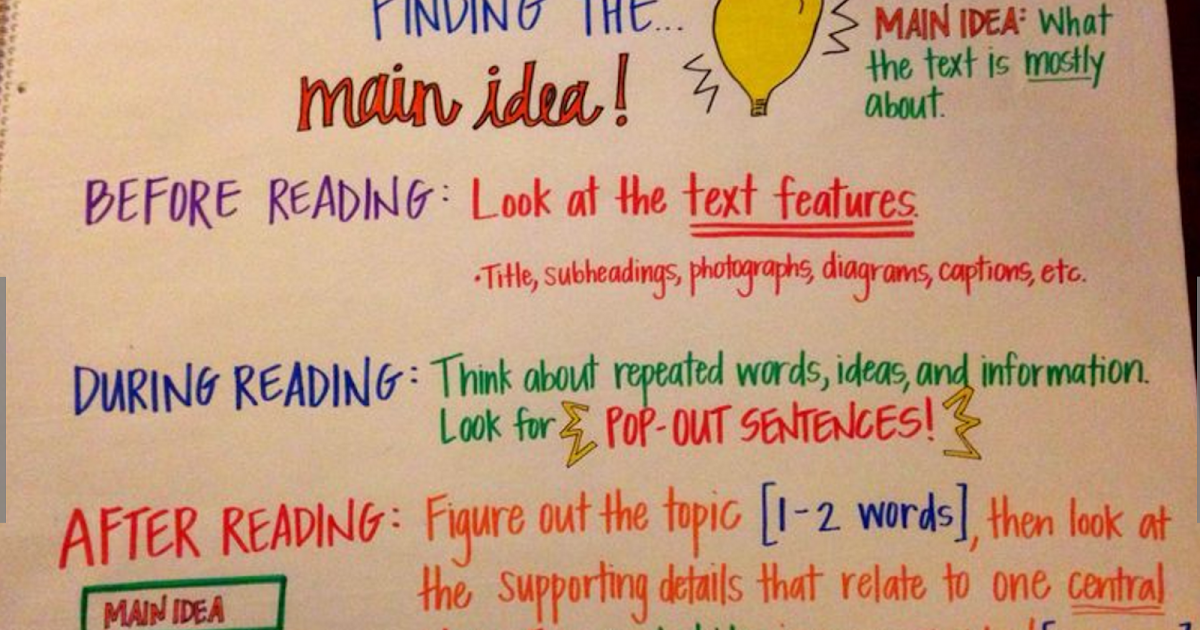 FINDING THE...
main idea!
MAIN IDEA: What
the text is mostly
about.
BEFORE READING: Look at the text features.
•Title, subheadings, photographs, diagrams, captions, etc.
DURING READING: Think about repeated words, ideas, and information.
Look for POP-OUT SENTENCES!
AFTER READING: Figure out the topic [1-2 words], then look at
the supporting details that relate to one central
MAIN IDEA